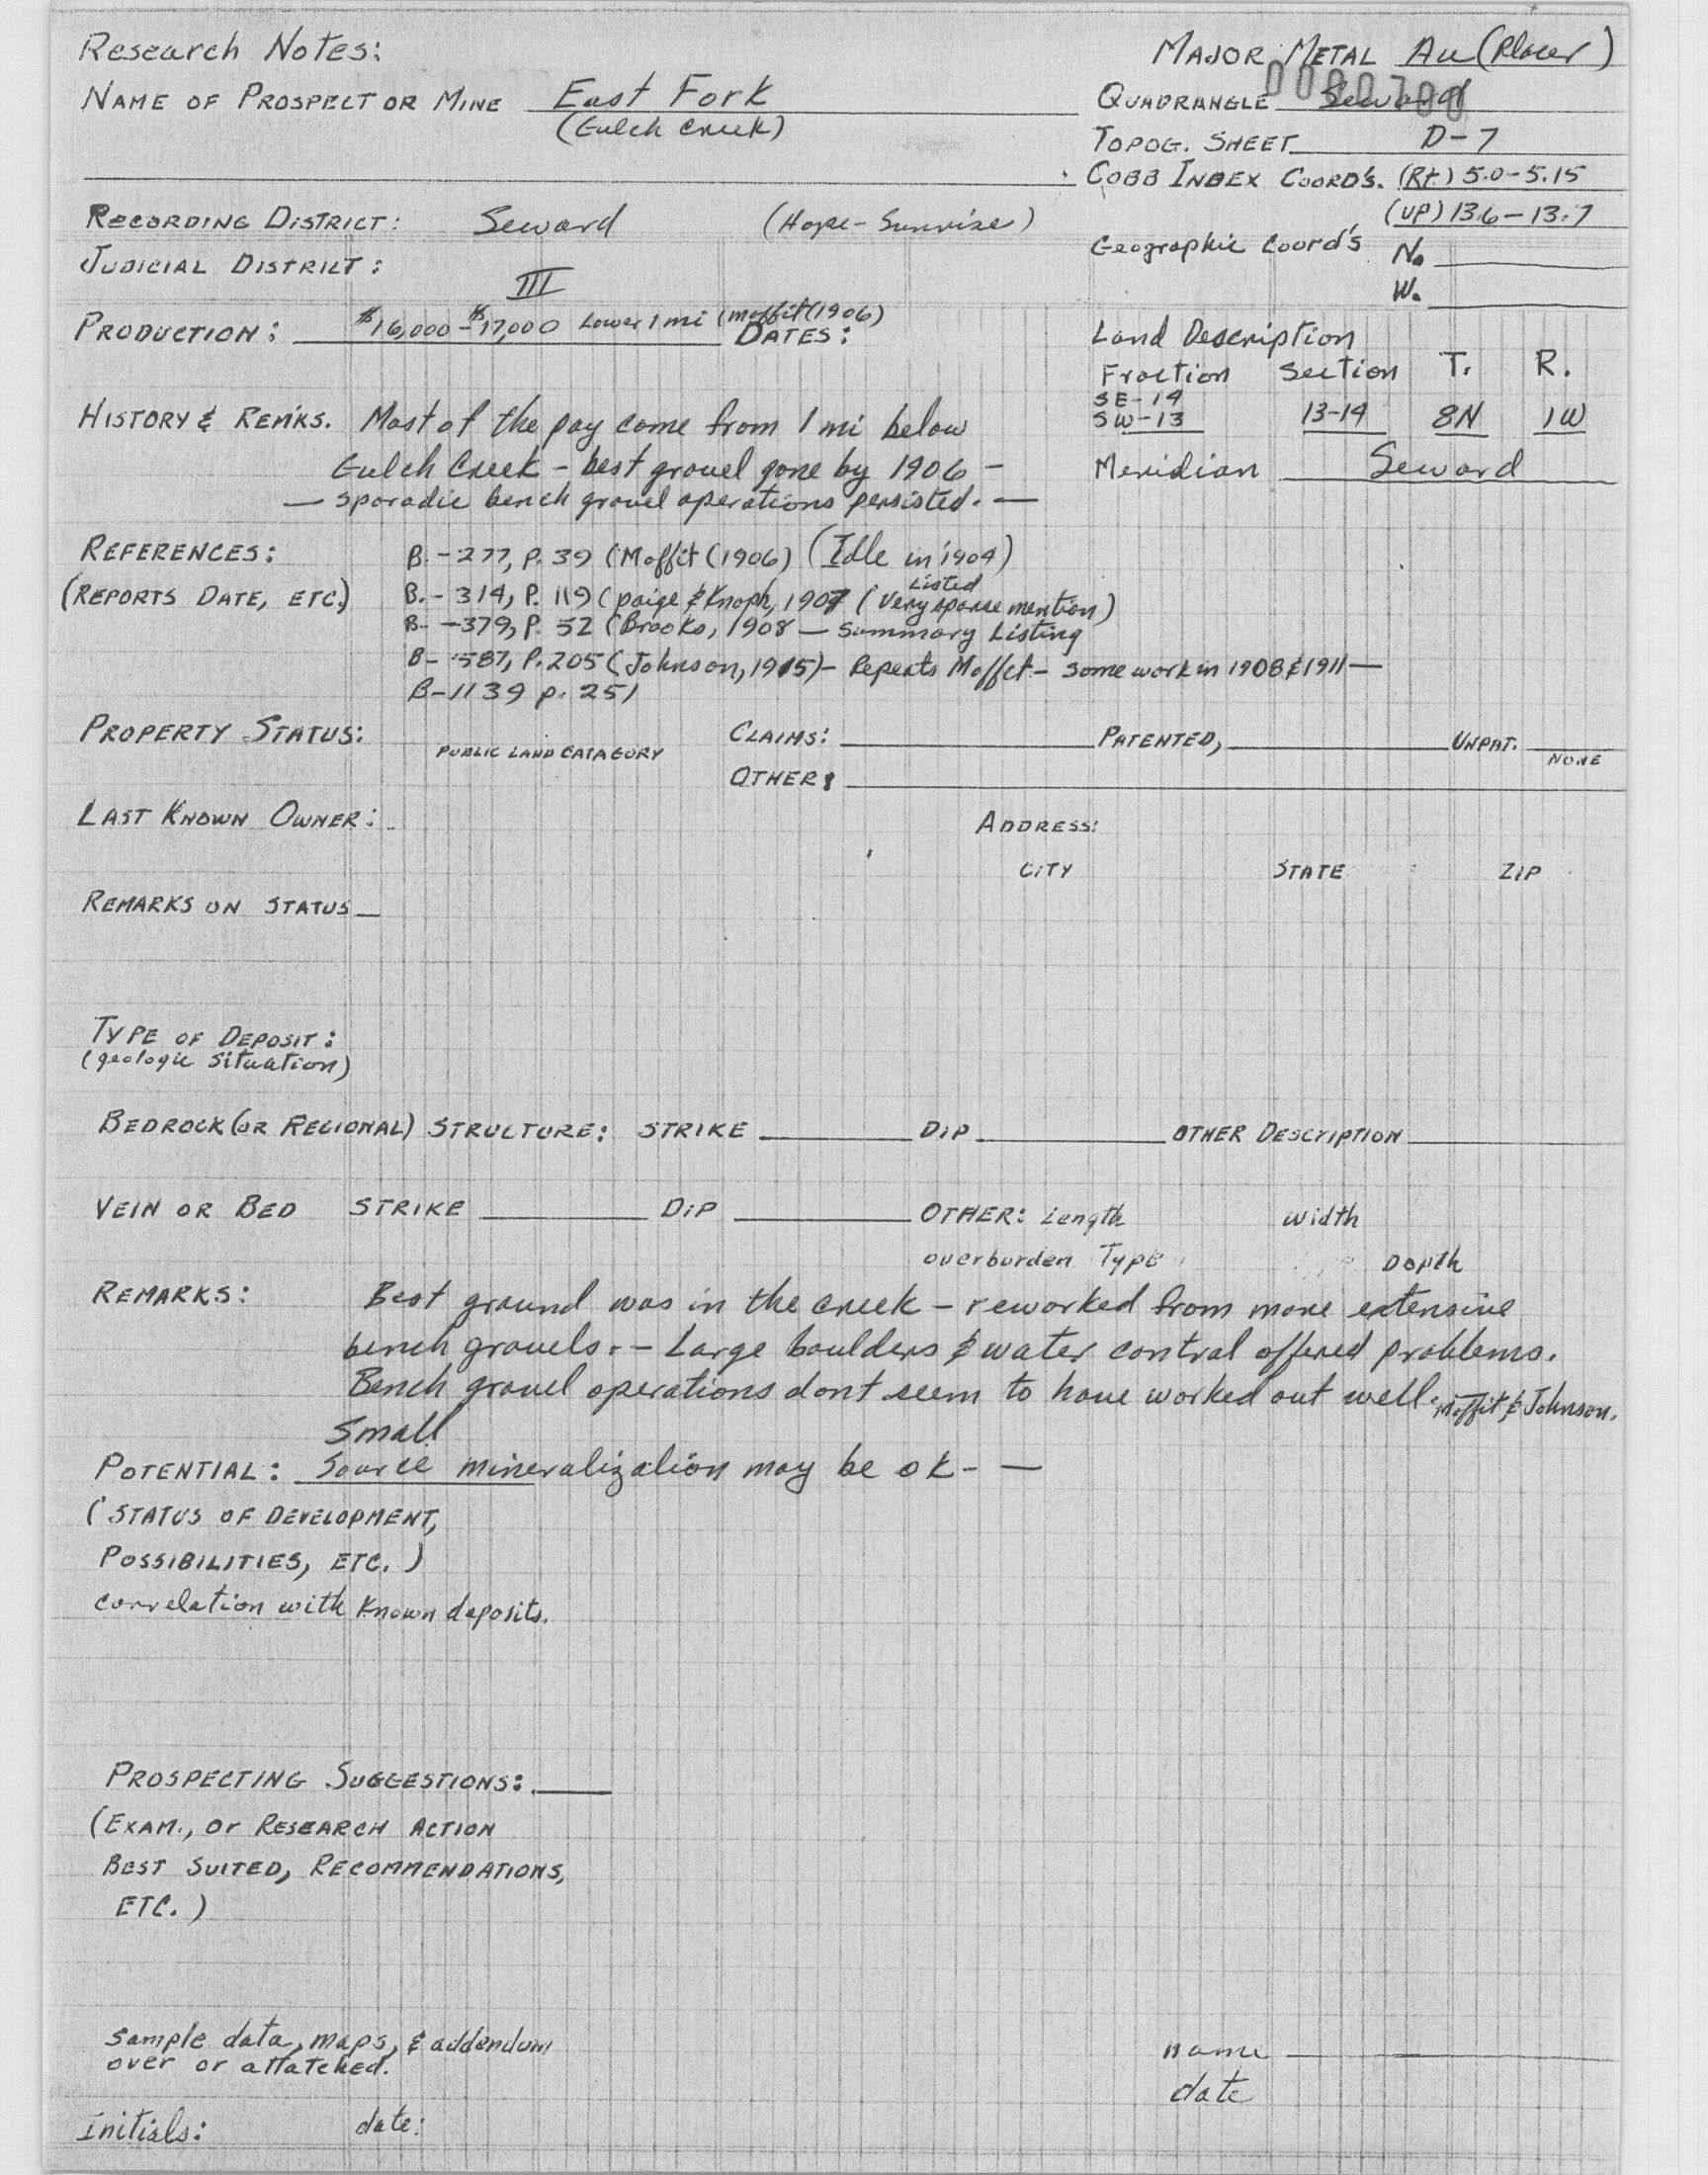 Research Notes:
MAJOR METAL Au (Placer)
NAME OF PROSPECT OR MINE East Fork
(Gulch Creek)
QUADRANGLE Seward
TOPOG. SHEET D-7
COBB INDEX COORD'S. (Rt.) 5.0-5.15
(UP) 13.6-13.7
RECORDING DISTRICT: Seward (Hope-Sunrise)
Geographic Coord's N.
W.
JUDICIAL DISTRICT: III
PRODUCTION: $16,000-$17,000 Lower 1 mi (Moffit (1906)
DATES:
Land Description
Fraction Section T. R.
SE-14
SW-13 13-14 8N 1W
Meridian Seward
HISTORY & REM'KS. Most of the pay come from 1 mi below
Gulch Creek - best gravel gone by 1906 -
- sporadic bench gravel operations persisted. -
REFERENCES:
(REPORTS DATE, ETC.)
B.-277, P. 39 (Moffit (1906) (Idle in 1904)
B.-314, P. 119 (Paige & Knoph, 1907 (Listed Very sparse mention)
B--379, P. 52 (Brooks, 1908 - Summary Listing
B-587, P. 205 (Johnson, 1915) - Repeats Moffet - some work in 1908 & 1911 -
B-1139 p. 251
PROPERTY STATUS:
PUBLIC LAND CATAGORY
CLAIMS: PATENTED, UNPAT.
NONE
OTHER:
LAST KNOWN OWNER:
ADDRESS:
CITY STATE ZIP
REMARKS ON STATUS
TYPE OF DEPOSIT:
(geologic situation)
BEDROCK (OR REGIONAL) STRUCTURE: STRIKE DIP OTHER DESCRIPTION
VEIN OR BED STRIKE DIP OTHER: Length Width
overburden Type Depth
REMARKS: Best ground was in the creek - reworked from more extensive
bench gravels. - Large boulders & water control offered problems.
Bench gravel operations dont seem to have worked out well. Moffit & Johnson.
Small
POTENTIAL: Source mineralization may be ok- -
(STATUS OF DEVELOPMENT,
POSSIBILITIES, ETC.)
correlation with known deposits.
PROSPECTING SUGGESTIONS:
(EXAM., or RESEARCH ACTION
BEST SUITED, RECOMMENDATIONS,
ETC.)
sample data, maps, & addendum
over or attatched.
name
date
Initials: date: